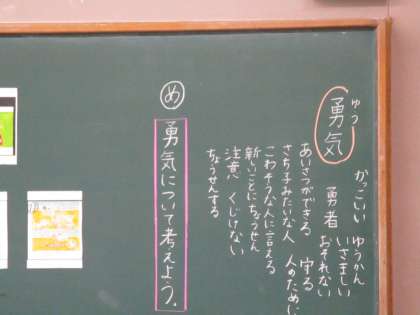 ゆう
勇気
かっこいい ゆうかん
いさましい
勇者 おそれない
守る 人のために
あいさつができる
さち子みたいな人
こわそうな人に言える
新しいことにちょうせん
注意 くじけない
ちょうせんする
め
勇気について考えよう。